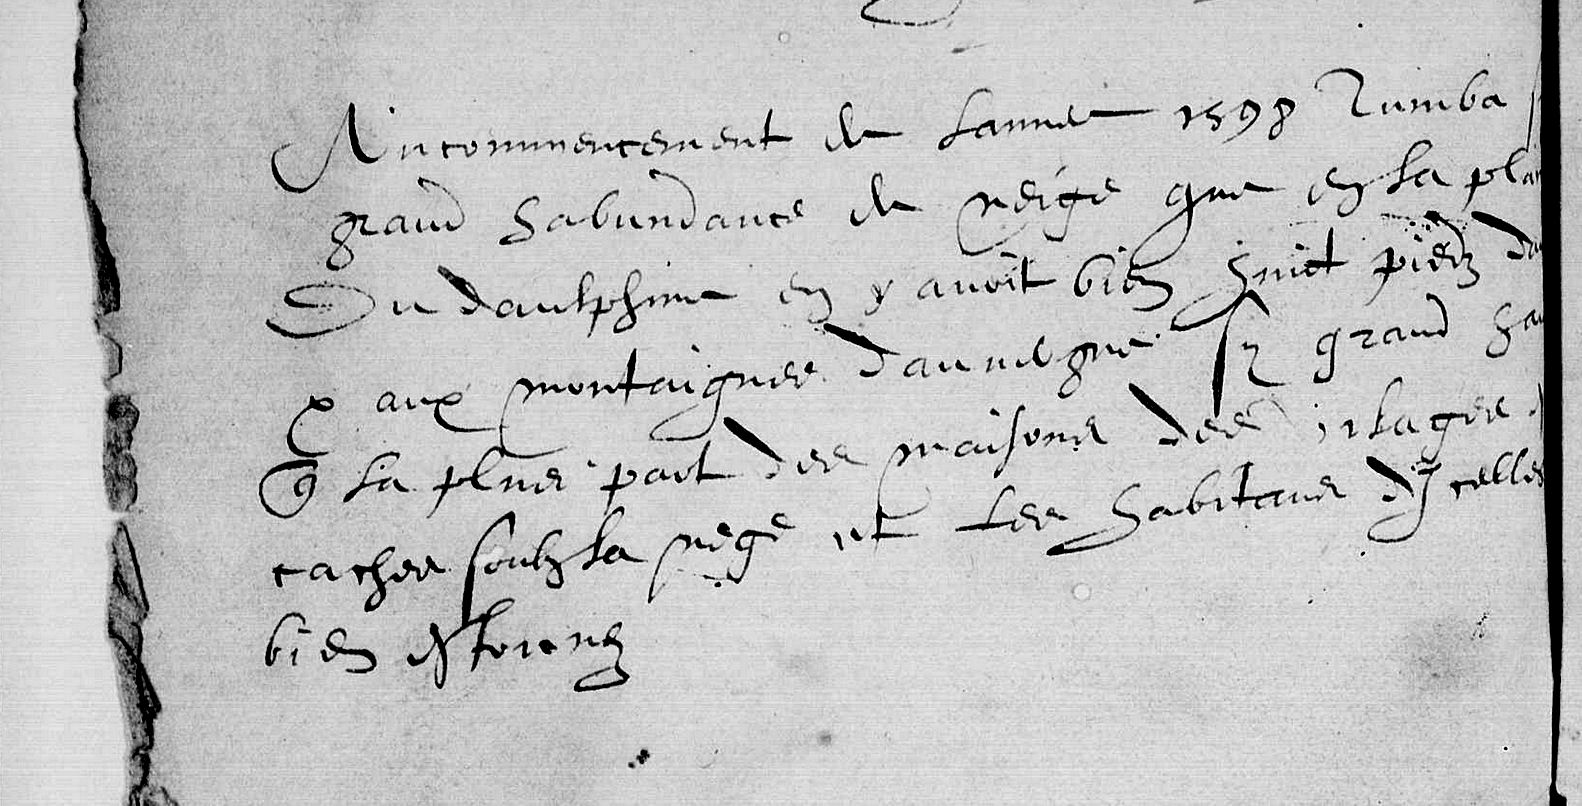 Au commencement de lannee 1598 tumba s
grand habundance de neige que en la plai
Du daulphine en y avoit bien huict piedz da
et aux montaignes dauvergne sy grand ha
q la plus part des maisons des vilages
caches soubz la nege et les habitans dycelles
bien estonnez